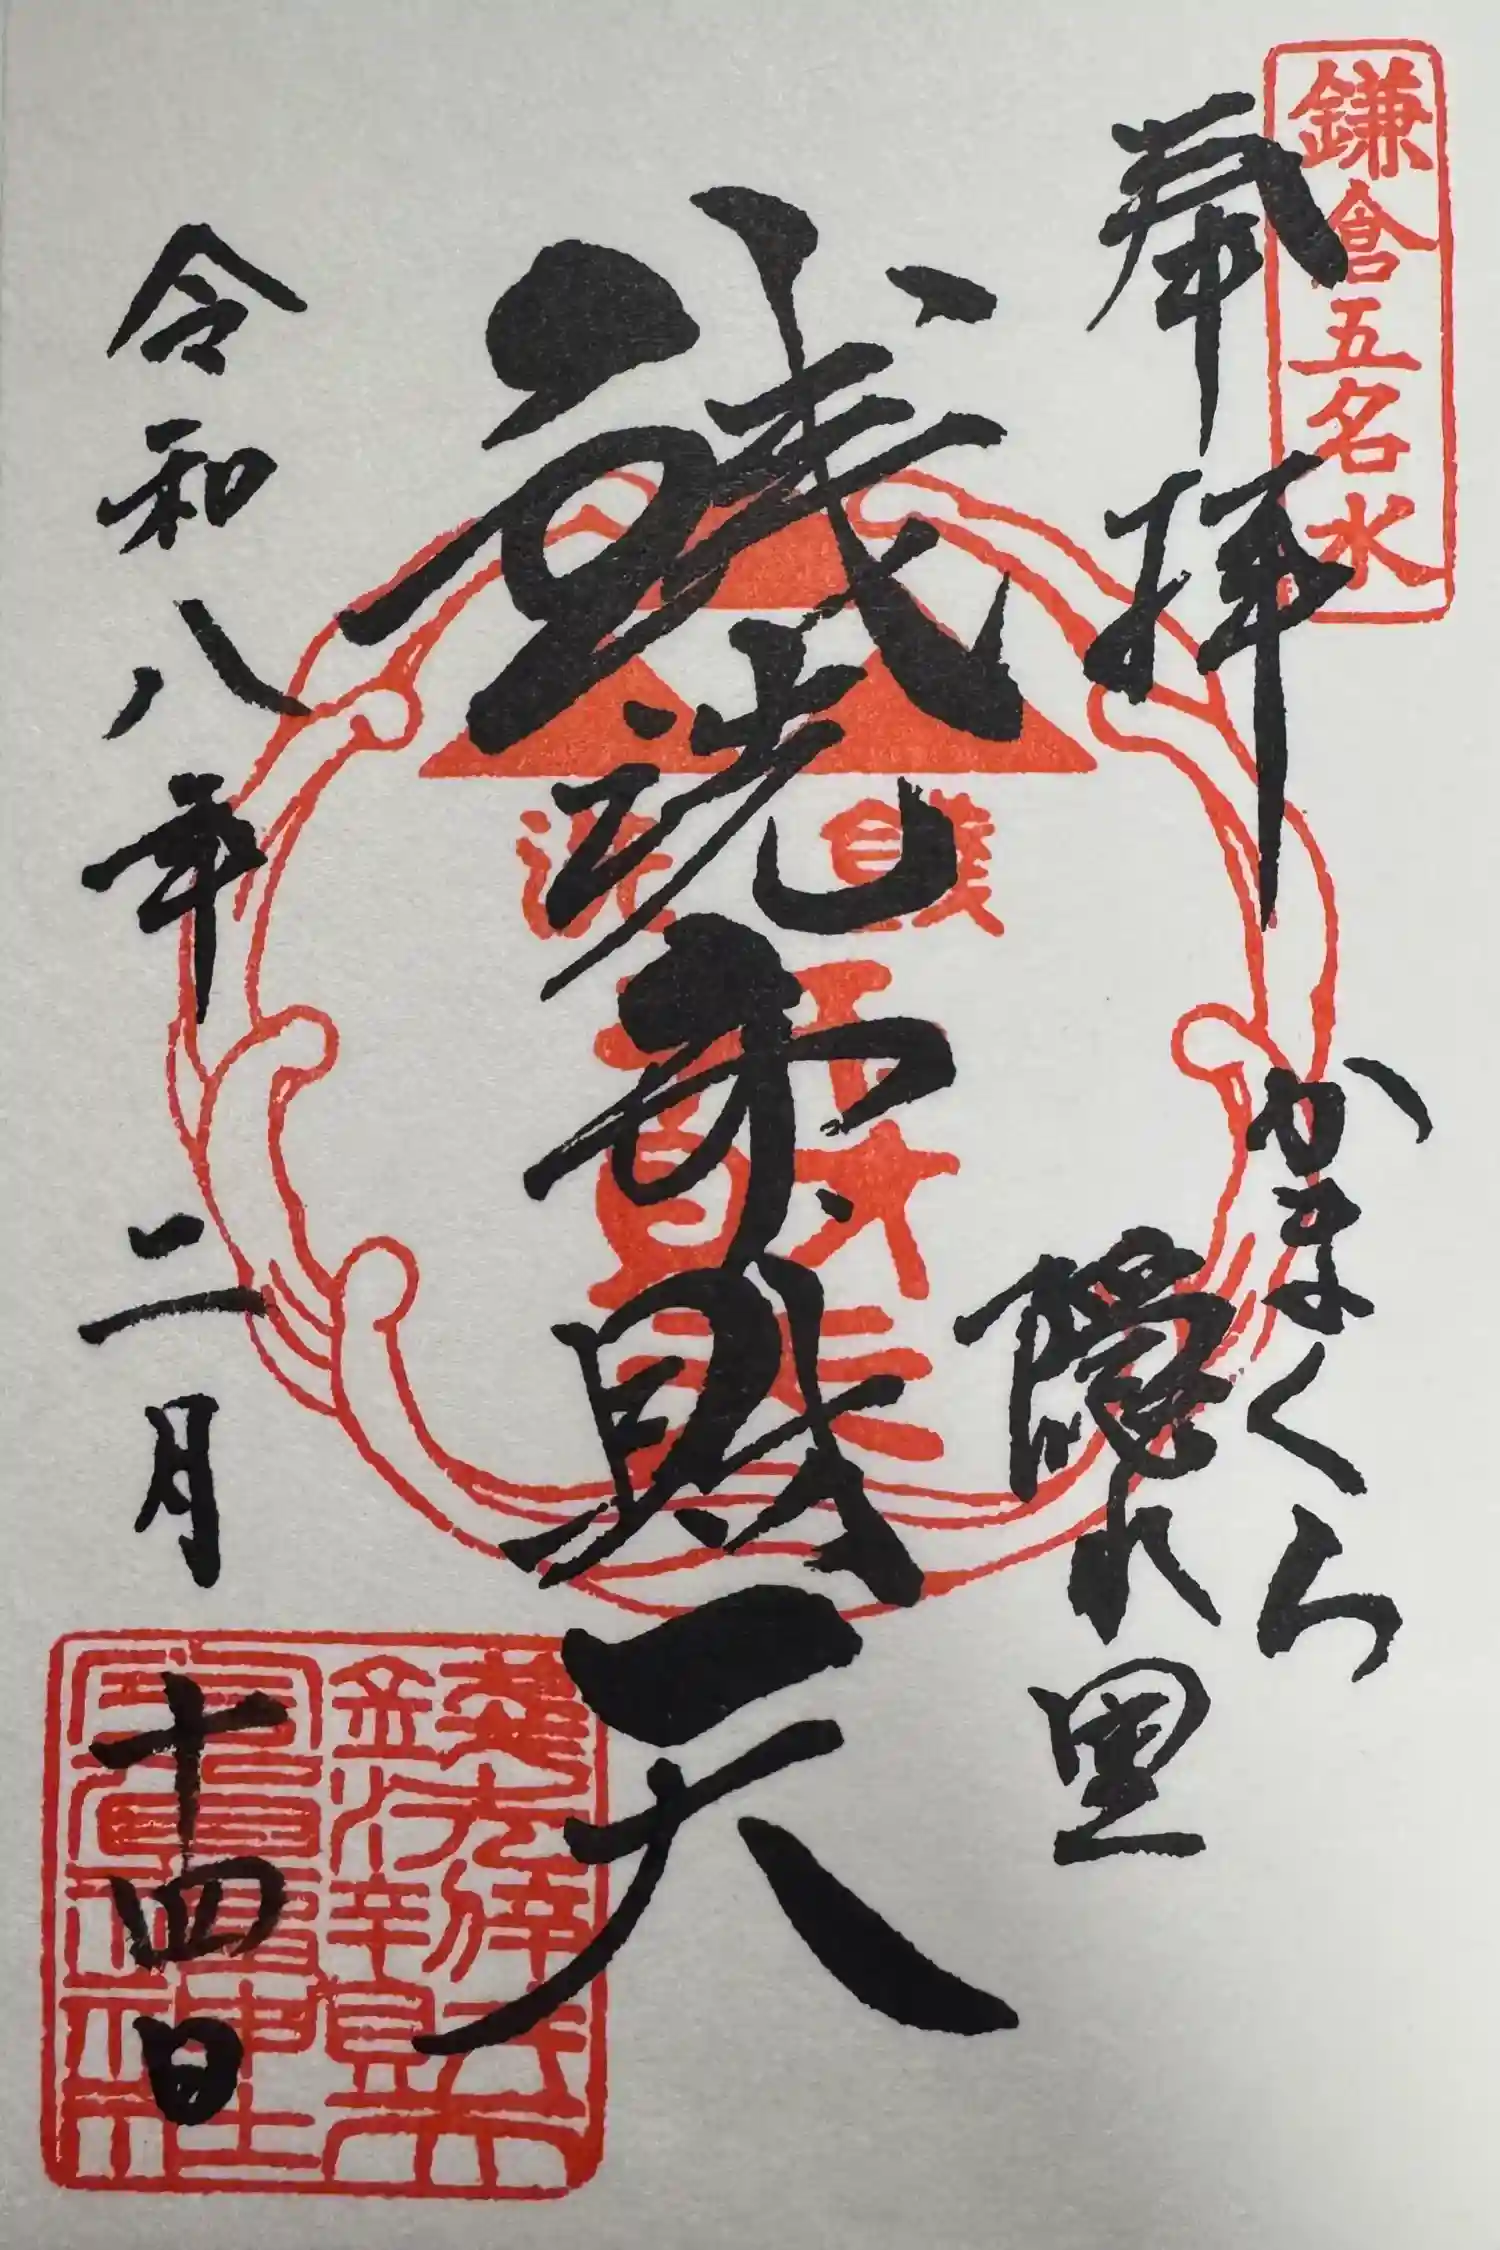 鎌倉五名水
奉拝
かまくら
隠れ里
銭洗弁財天
銭洗
弁財天
令和八年二月十四日